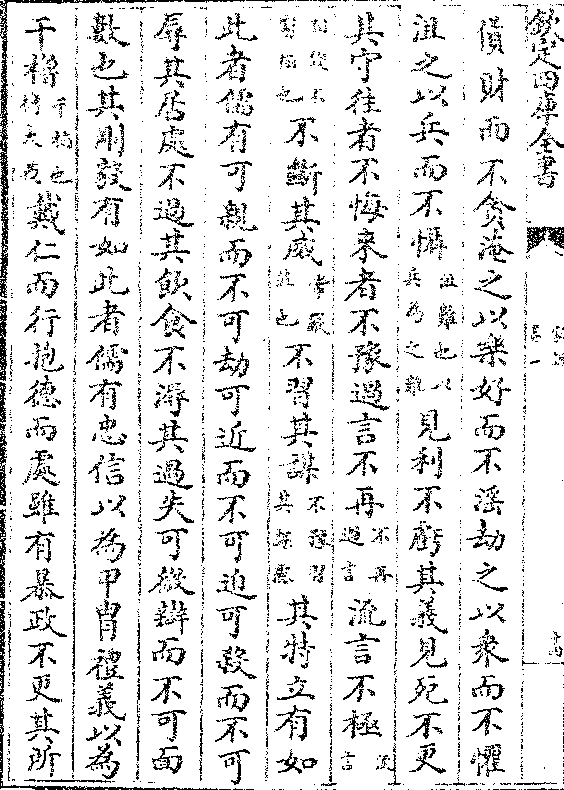 欽定四庫全書
貨財而不貪淹之以樂好而不淫劫之以衆而不懼
沮之以兵而不懾沮難也以兵為之難見利不虧其義見死不更
其守往者不悔來者不豫過言不再不再過言流言不極流言
不斷其威常嚴莊也不習其謀不豫習其謀慮其特立有如
此者儒有可親而不可劫可近而不可迫可殺而不可
辱其居處不過其飲食不溽其過失可微辯而不可面
數也其剛毅有如此者儒有忠信以為甲胄禮義以為
干櫓干楯也櫓大戟戴仁而行抱德而處雖有暴政不更其所